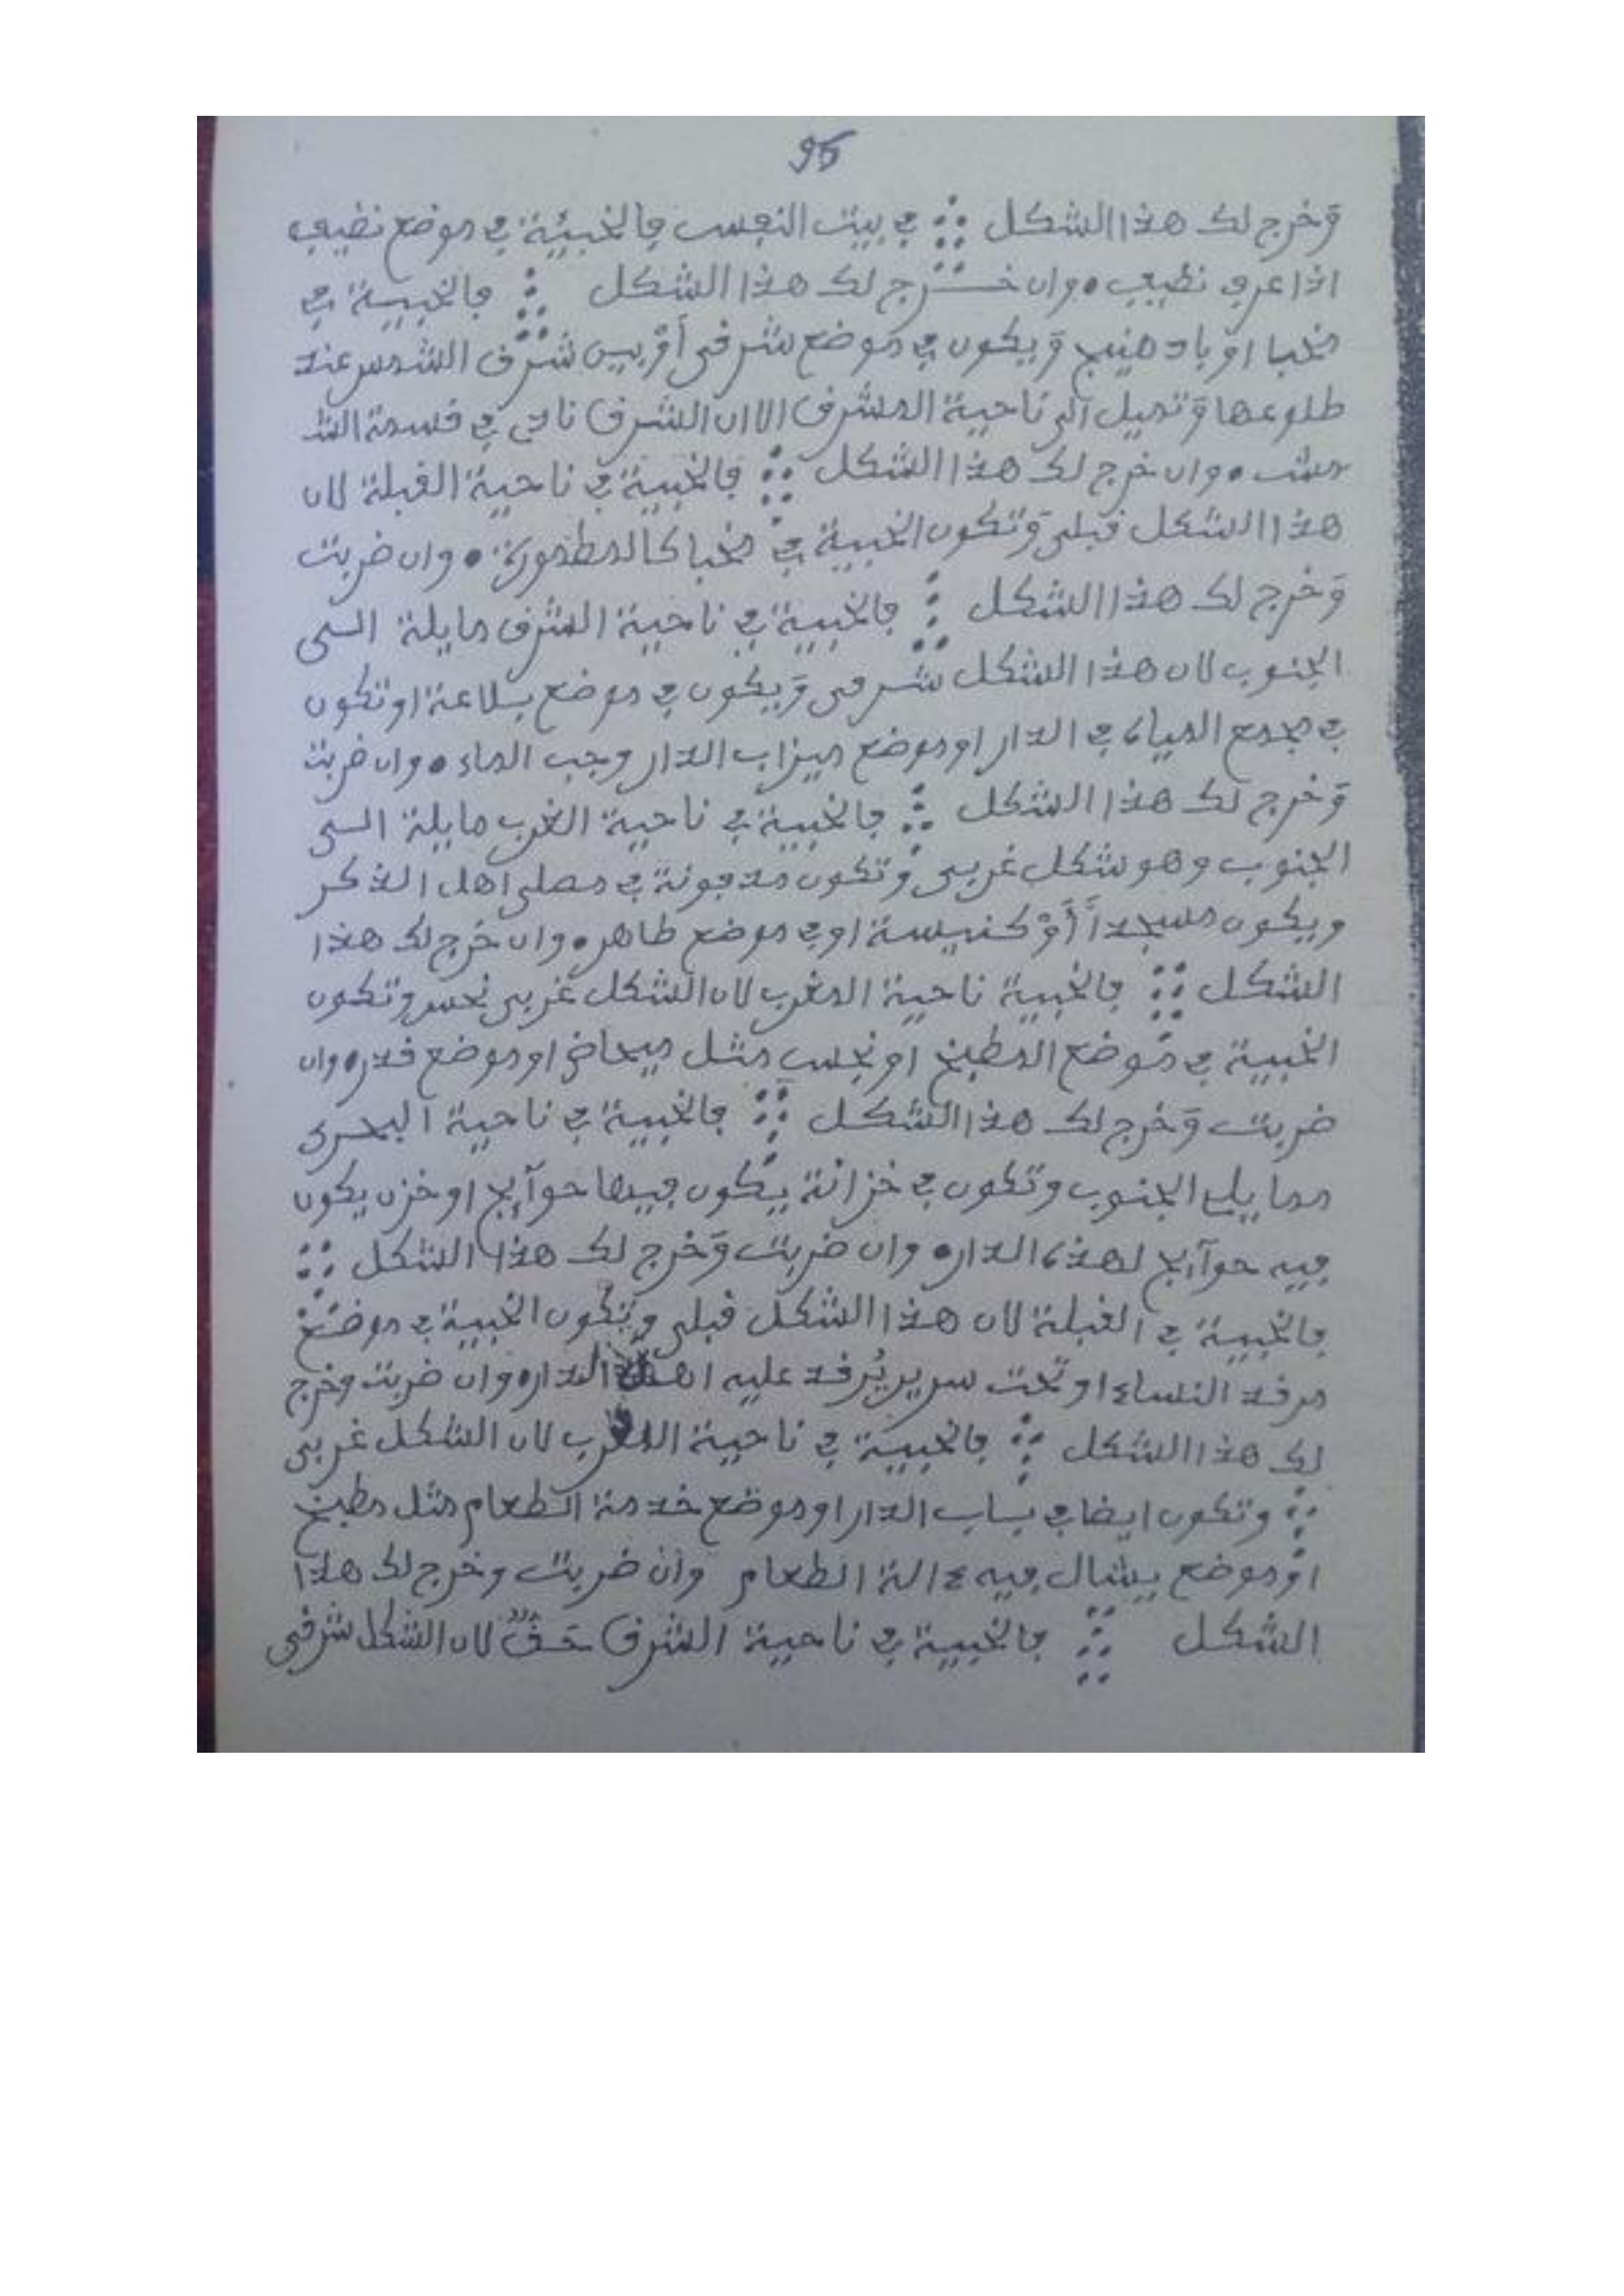 95
وَخرج لك هذا الشكل في بيت النفس فالخبيئة في موضع نضيف
اذا عرف نظيف • وان خـرج لك هذا الشكل فالخبيبة في
مخبا او باد هنيج وَيكون في موضع شرقي أوْ بيس شرَف الشمس عند
طلوعها وَتميل الى ناحية المشرق الا ان الشرق ناتي في قسمة
• وان خرج لك هذا الشكل فالخبيبة في ناحية القبلة لان
هذا الشكل قبلي وَتكون الخبيبة في مخبا كالمطمورة • وان ضربت
وَخرج لك هذا الشكل فالخبيبة في ناحية الشرق مايلة الــى
الجنوب لان هذا الشكل شـرقي وَيكون في موضع بـلاعة او تكون
في مجمع المياه في الدار او موضع ميزاب الدار وجب الماء • وان ضربت
وَخرج لك هذا الشكل فالخبيبة في ناحية الغرب مايلة الــى
الجنوب وهو شكل غربي وَتكون مدفونة في مصلى اهل الذكر
ويكون مسجداً أَوْ كنيسة او في موضع طاهر • وان خَرج لك هذا
الشكل فالخبيبة ناحية المغرب لان الشكل غربي نحس وتكون
الخبيبة في مَوضع المطبخ او نجس مثل ميحاض او موضع قذر • وان
ضربت وَخرج لك هذا الشكل فالخبيبة في ناحية البحـرى
مما يلي الجنوب وتكون في خزانة يكون فيها حوآيج او خزن يكون
فيه حوآيج لهذه الدار • وان ضربت وَخرج لك هذا الشكل
فالخبيبة في القبلة لان هذا الشكل قبلي وتكون الخبيبة في موضـع
مرقد النساء او تحت سرير يُرقد عليه اهل الدار • وان ضربت وخرج
لك هذا الشكل فالخبيبة في ناحية المغرب لان الشكل غربي
وتكون ايضا في بـاب الدار او موضع خدمة الطعام مثل مطبخ
اوْ موضع يشال فيه ءالة الطعام وان ضربت وخرج لك هذا
الشكل فالخبيبة في ناحية الشرق حَقٌّ لان الشكل شرقي